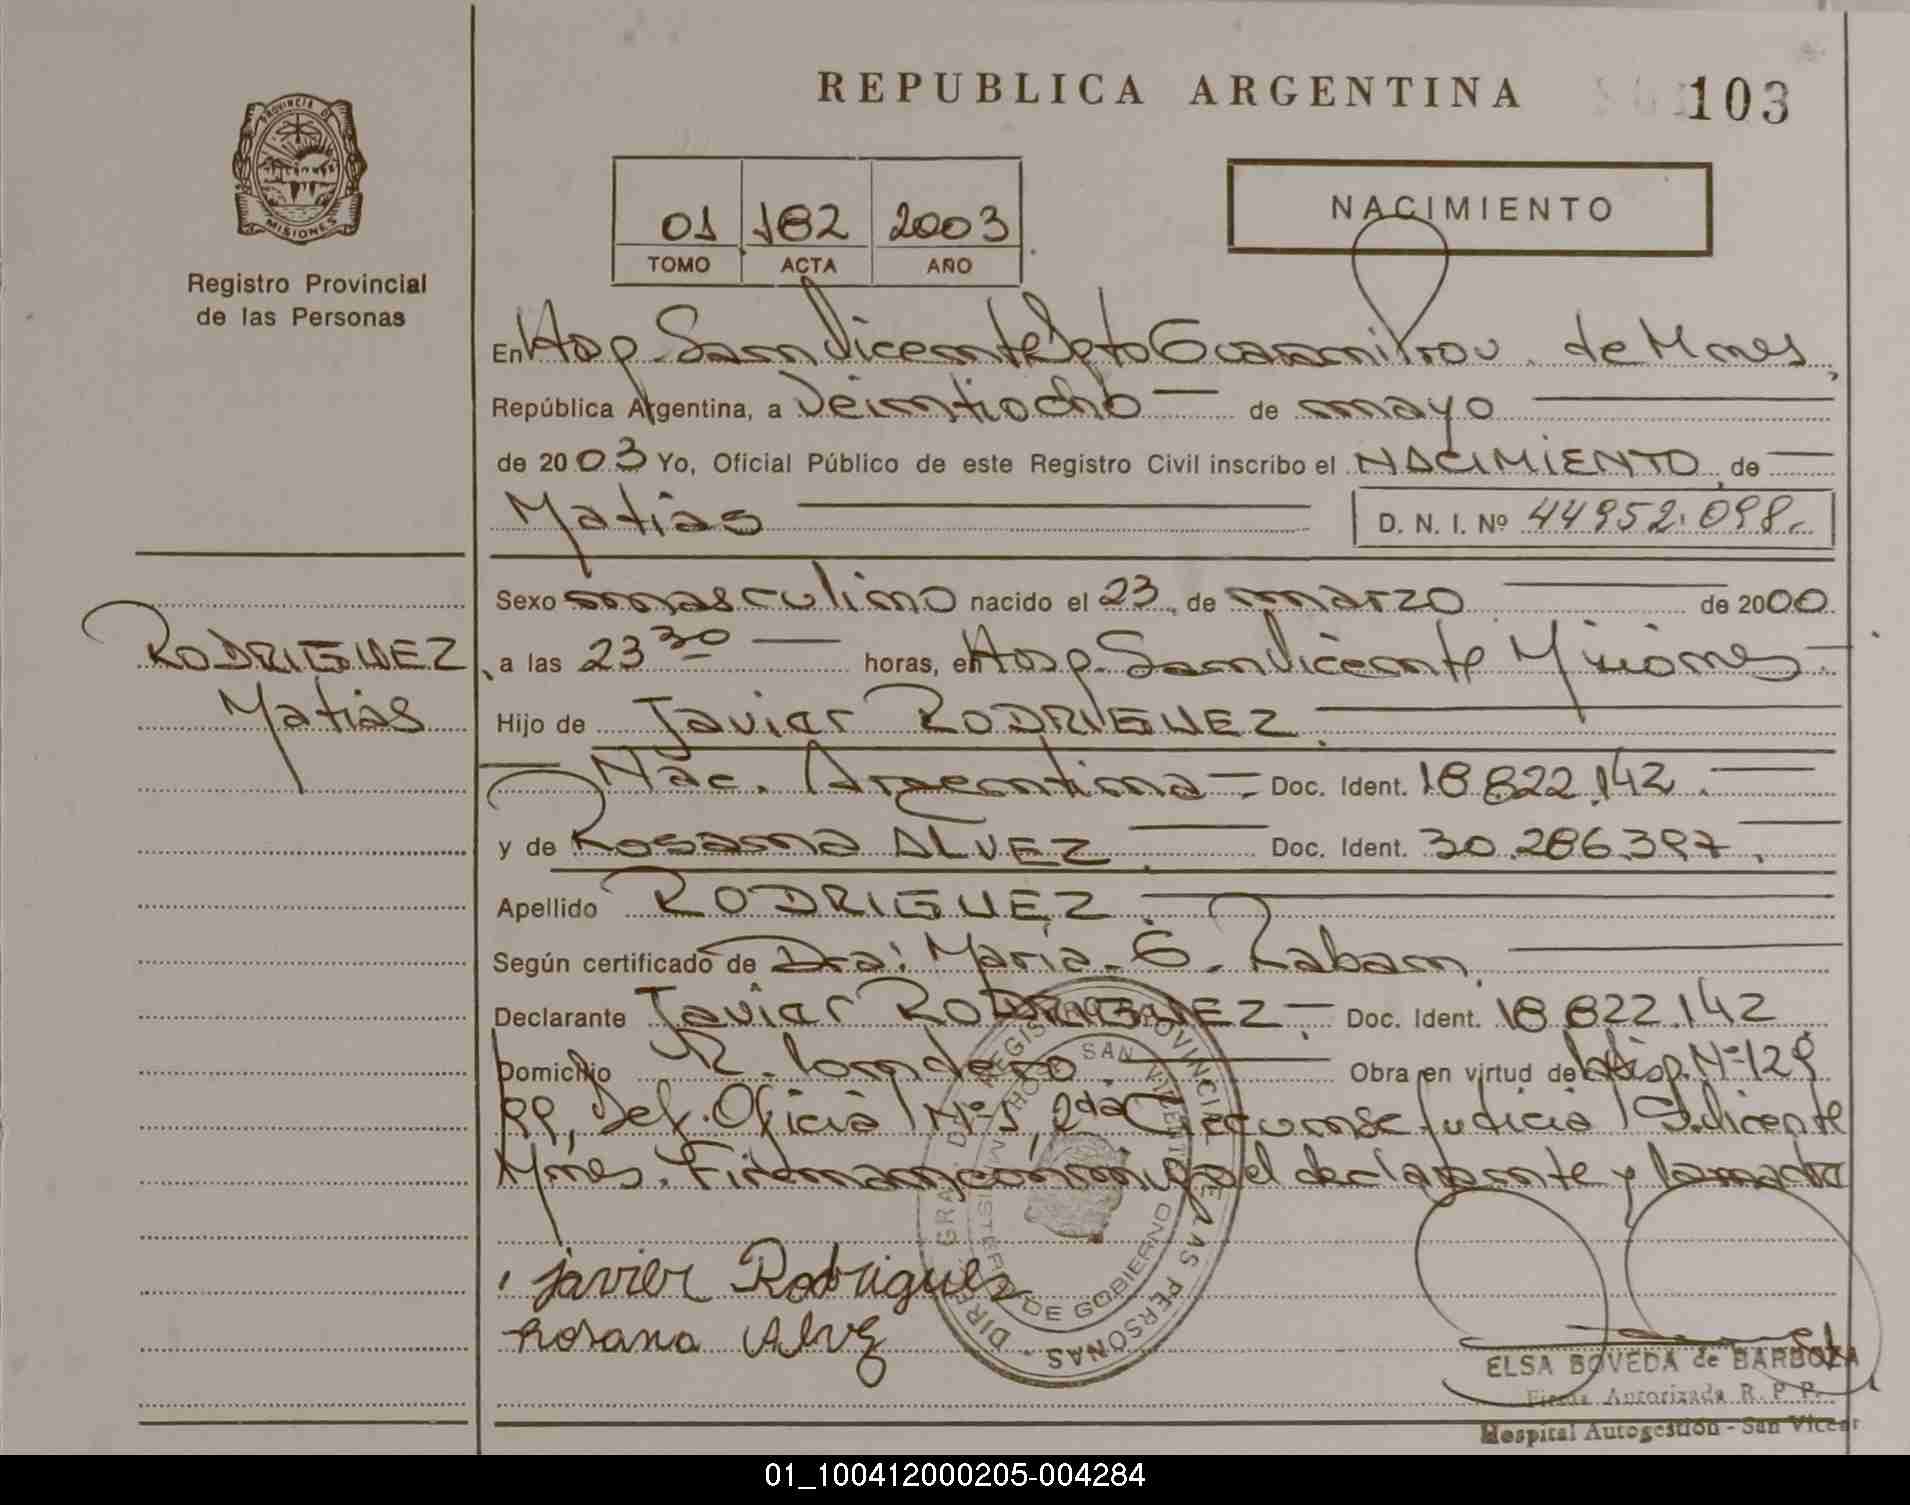 PROVINCIA DE
MISIONES
Registro Provincial
de las Personas
REPUBLICA ARGENTINA
103
01 182 2003
TOMO ACTA AÑO
NACIMIENTO
En Hosp. San Vicente Dpto Guarani Prov. de Mnes,
República Argentina, a Veintiocho de mayo
de 2003 Yo, Oficial Público de este Registro Civil inscribo el NACIMIENTO de
Matias
D. N. I. Nº 44952.098.-
Sexo masculino nacido el 23 de marzo de 2000
RODRIGUEZ
Matias
a las 23 30 horas, en Hosp. San Vicente Misiones.-
Hijo de Javier RODRIGUEZ.
Nac. Argentina - Doc. Ident. 18.822.142.
y de Rosana ALVEZ. Doc. Ident. 30.286.397.
Apellido RODRIGUEZ.
Según certificado de Dra: Maria. E. Raban.
Declarante Javier RODRIGUEZ.- Doc. Ident. 18.822.142
Domicilio R. Londero. Obra en virtud de Disp. Nº 129
99, Def. Oficial Nº 1, 2da Circunsc Judicial S. Vicente
Mnes. Firman conmigo el declarante y la madre
Javier Rodriguez
Rosana Alvez
DIR. GRAL. DEL REGISTRO PROVINCIAL DE LAS PERSONAS
HOSP. SAN VICENTE
MINISTERIO DE GOBIERNO
ELSA BOVEDA de BARBOZA
Firma Autorizada R. P. P.
Hospital Autogestión - San Vicen
01_100412000205-004284